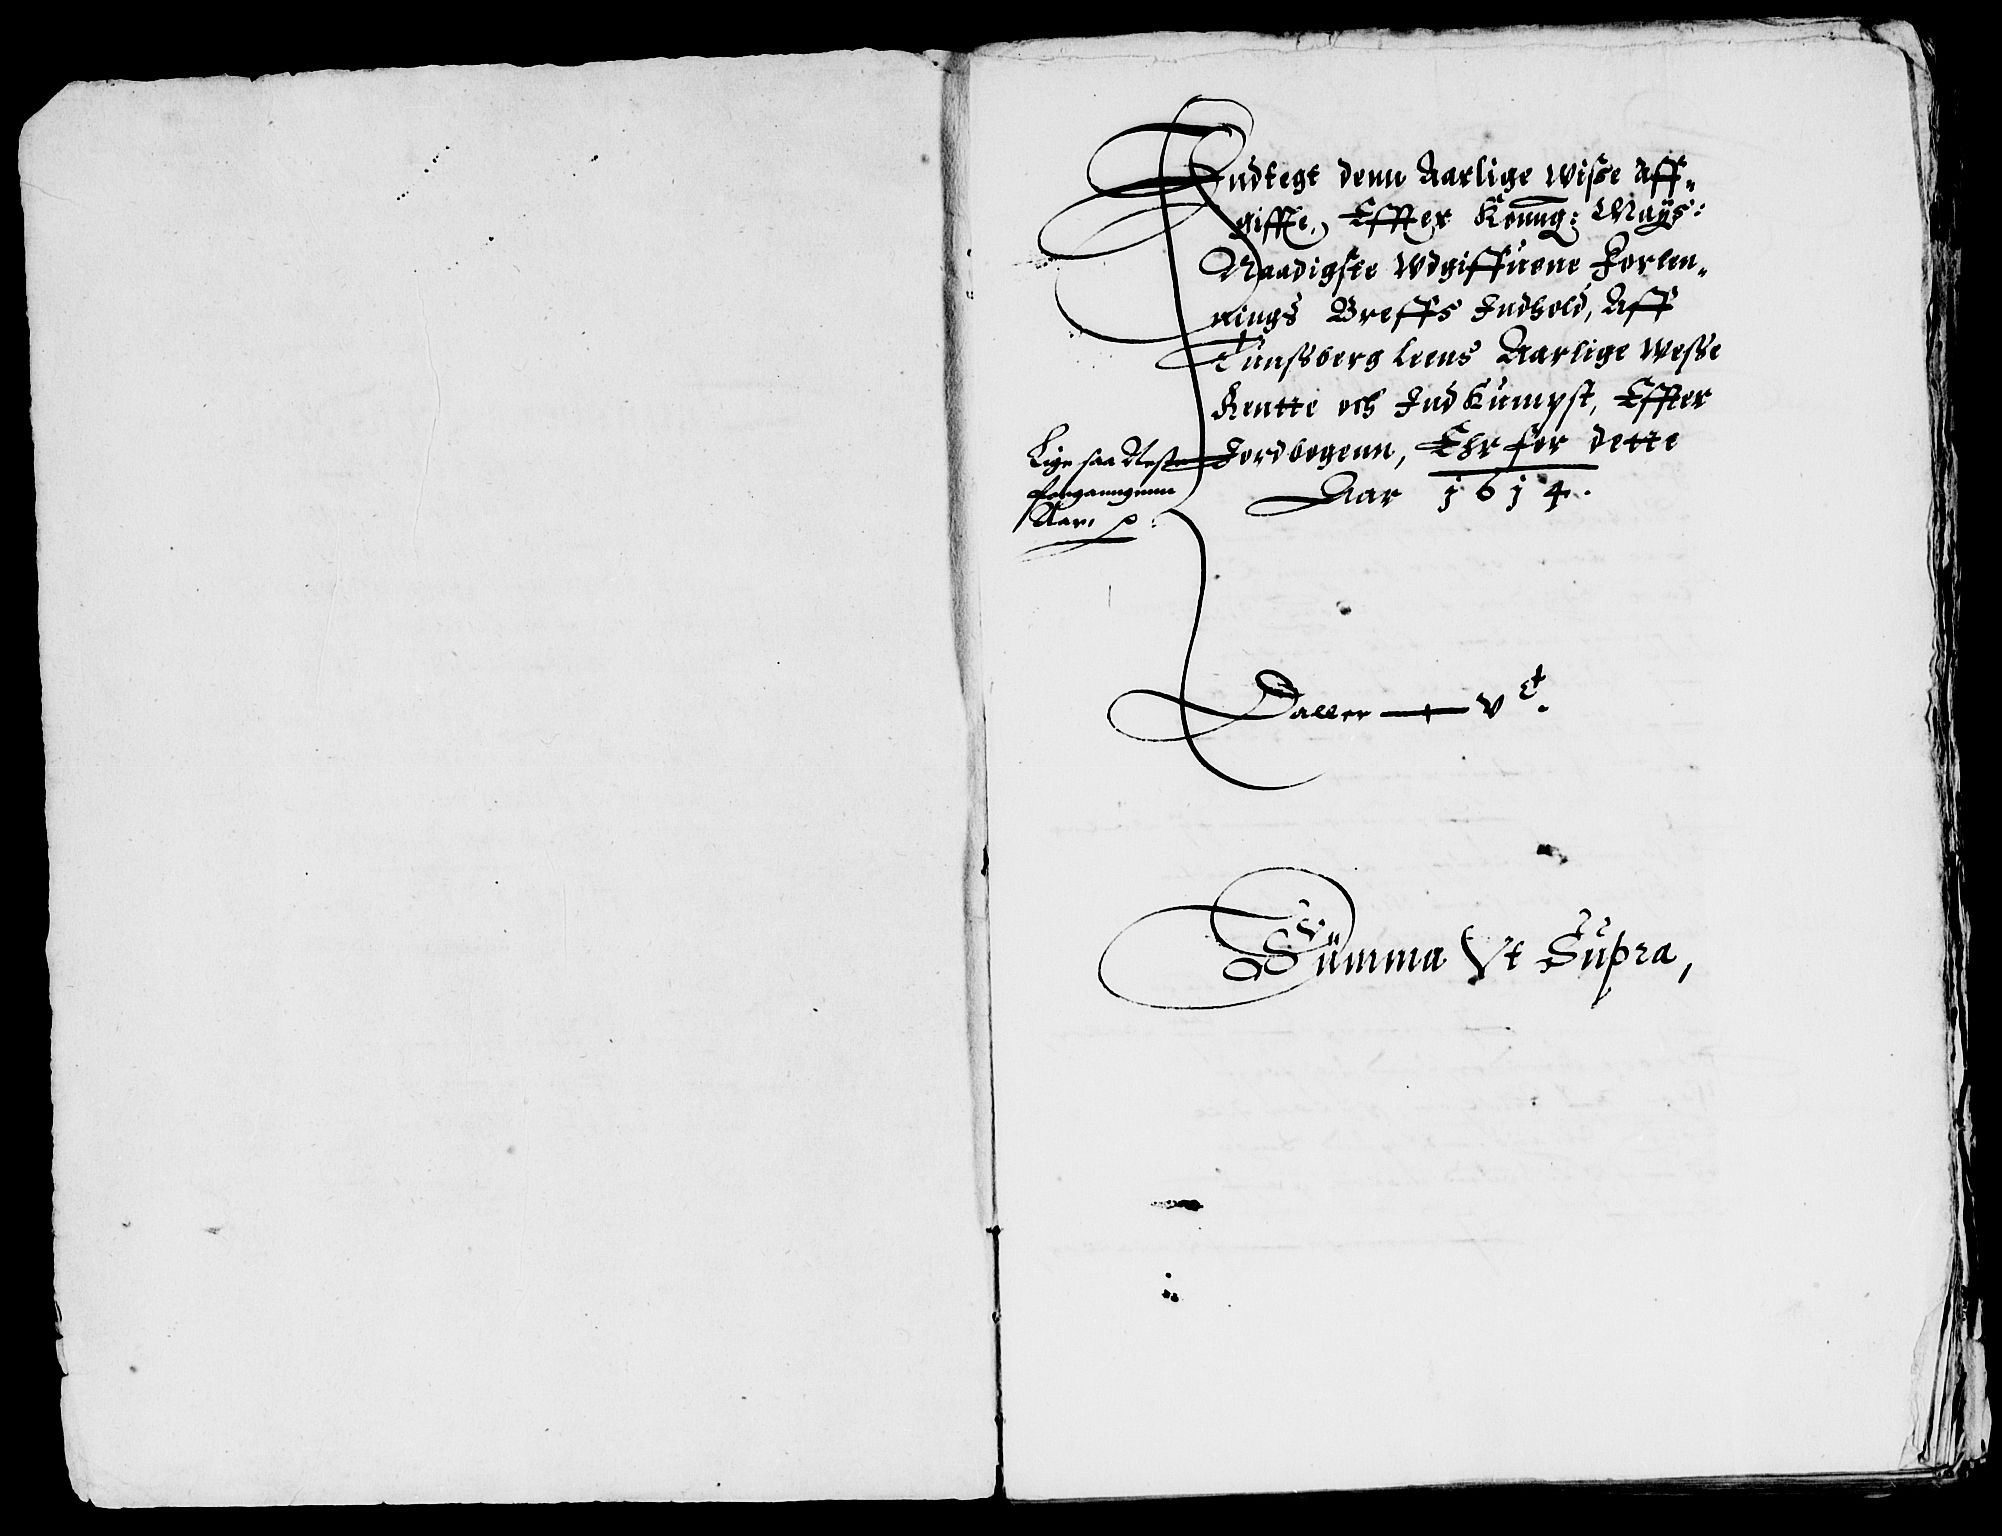 Indtegt denn Aarlige wisse Aff„
giffte, Effter Konng: Mayts:
Naadigste Wdgiffuene Forlen„
nings Breffs Indhold, Aff
Tunssberg Leens Aarlige wesse
Rentte och Indkumpst, Effter
Jordbogenn, Ehr for dette
Aar 1614.
Lige saa Nest
forganngenn
Aar.
Daller — vᶜ.
Summa Vt Supra,